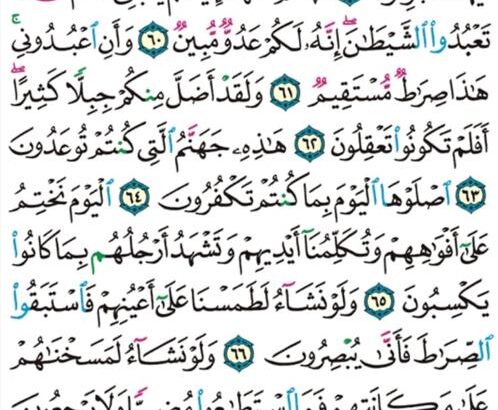 تَعْبُدُوا۟ ٱلشَّيْطَٰنَ ۖ إِنَّهُۥ لَكُمْ عَدُوٌّ مُّبِينٌ ٦٠ وَأَنِ ٱعْبُدُونِى ۚ
هَٰذَا صِرَٰطٌ مُّسْتَقِيمٌ ٦١ وَلَقَدْ أَضَلَّ مِنكُمْ جِبِلًّا كَثِيرًا ۖ
أَفَلَمْ تَكُونُوا۟ تَعْقِلُونَ ٦٢ هَٰذِهِۦ جَهَنَّمُ ٱلَّتِى كُنتُمْ تُوعَدُونَ
٦٣ ٱصْلَوْهَا ٱلْيَوْمَ بِمَا كُنتُمْ تَكْفُرُونَ ٦٤ ٱلْيَوْمَ نَخْتِمُ
عَلَىٰٓ أَفْوَٰهِهِمْ وَتُكَلِّمُنَآ أَيْدِيهِمْ وَتَشْهَدُ أَرْجُلُهُم بِمَا كَانُوا۟
يَكْسِبُونَ ٦٥ وَلَوْ نَشَآءُ لَطَمَسْنَا عَلَىٰٓ أَعْيُنِهِمْ فَٱسْتَبَقُوا۟
ٱلصِّرَٰطَ فَأَنَّىٰ يُبْصِرُونَ ٦٦ وَلَوْ نَشَآءُ لَمَسَخْنَٰهُمْ